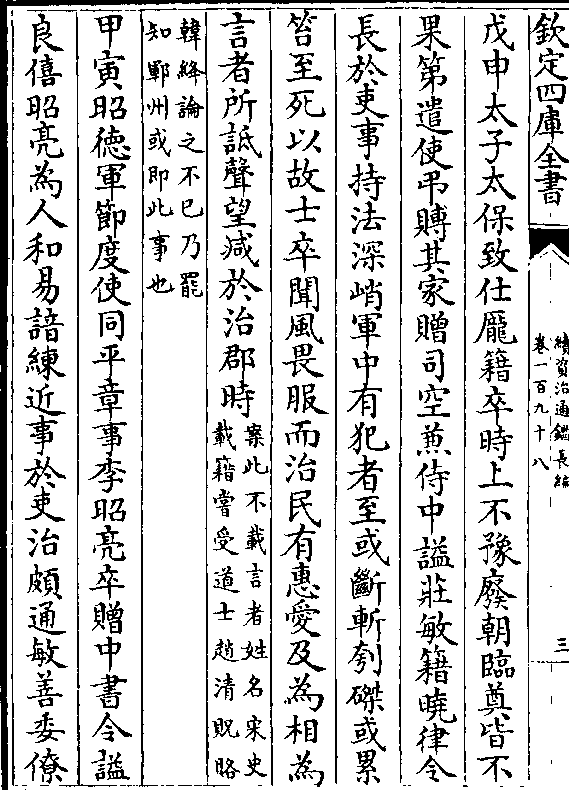 欽定四庫全書
續資治通鑑長編
卷一百九十八
三
戊申太子太保致仕龐籍卒時上不豫廢朝臨奠皆不
果第遣使弔賻其家贈司空兼侍中諡莊敏籍曉律令
長於吏事持法深峭軍中有犯者至或斷斬刳磔或累
笞至死以故士卒聞風畏服而治民有惠愛及為相為
言者所詆聲望減於治郡時
案此不載言者姓名宋史
載籍嘗受道士趙清貺賂
韓絳論之不已乃罷
知鄆州或即此事也
甲寅昭德軍節度使同平章事李昭亮卒贈中書令諡
良僖昭亮為人和易諳練近事於吏治頗通敏善委僚